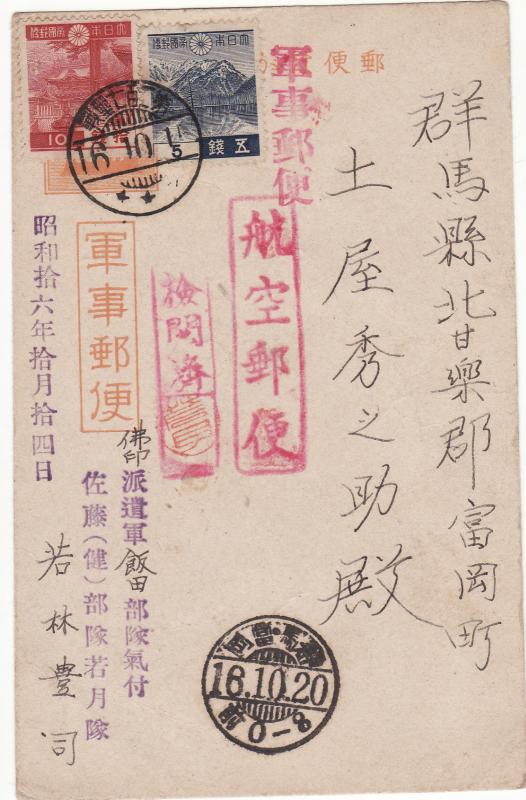 郵便
群馬縣北甘樂郡富岡町
土屋秀之助殿
軍事郵便
航空郵便
檢閲濟
軍事郵便
佛印派遣軍飯田部隊氣付
佐藤(健)部隊若月隊
若林豊司
昭和拾六年拾月拾四日
大日本帝國郵便
10
大日本帝國郵便
五錢
16.10.15
群馬・富岡
16.10.20
前0-8